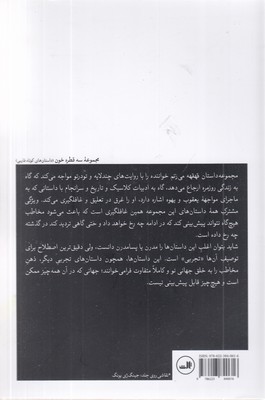 مجموعهٔ سه قطره خون (داستان‌های کوتاه فارسی)
مجموعه‌داستان قهقهه می‌زنم خواننده را با روایت‌های چندلایه و تودرتو مواجه می‌کند که گاه
به زندگی روزمره ارجاع می‌دهد، گاه به ادبیات کلاسیک و تاریخ و سرانجام با داستانی که به
ماجرای مواجههٔ یعقوب و یهوه اشاره دارد، او را غرق در تعلیق و غافلگیری می‌کند. ویژگی
مشترک همهٔ داستان‌های این مجموعه همین غافلگیری است که باعث می‌شود مخاطب
هیچ‌گاه نتواند پیش‌بینی کند در ادامه چه رخ خواهد داد و حتی گاهی تردید کند در گذشته
چه رخ داده است.
شاید بتوان اغلب این داستان‌ها را مدرن یا پسامدرن دانست، ولی دقیق‌ترین اصطلاح برای
توصیف آن‌ها «تجربی» است. این داستان‌ها، همچون داستان‌های تجربی دیگر، ذهن
مخاطب را به خلق جهانی نو و کاملاً متفاوت فرامی‌خوانند؛ جهانی که در آن همه‌چیز ممکن
و هیچ‌چیز قابل پیش‌بینی نیست.
*نقاشی روی جلد: جینگ‌زای یونگ